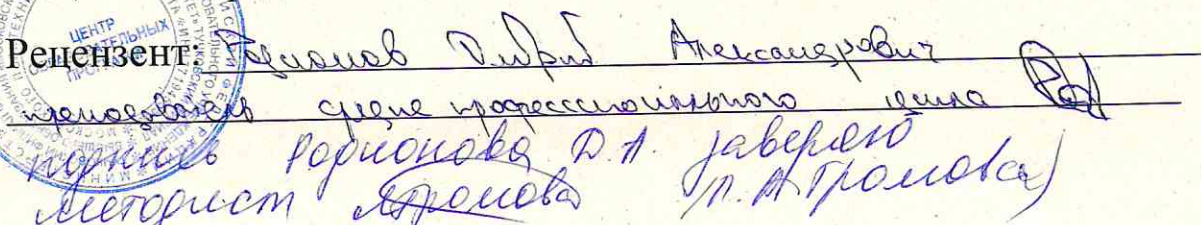 Рецензент: Родионов Дмитрий Александрович
преподаватель средне профессионального цикла
подпись Родионова Д.А. заверяю
методист Громова (Л.А Громова)
ЦЕНТР